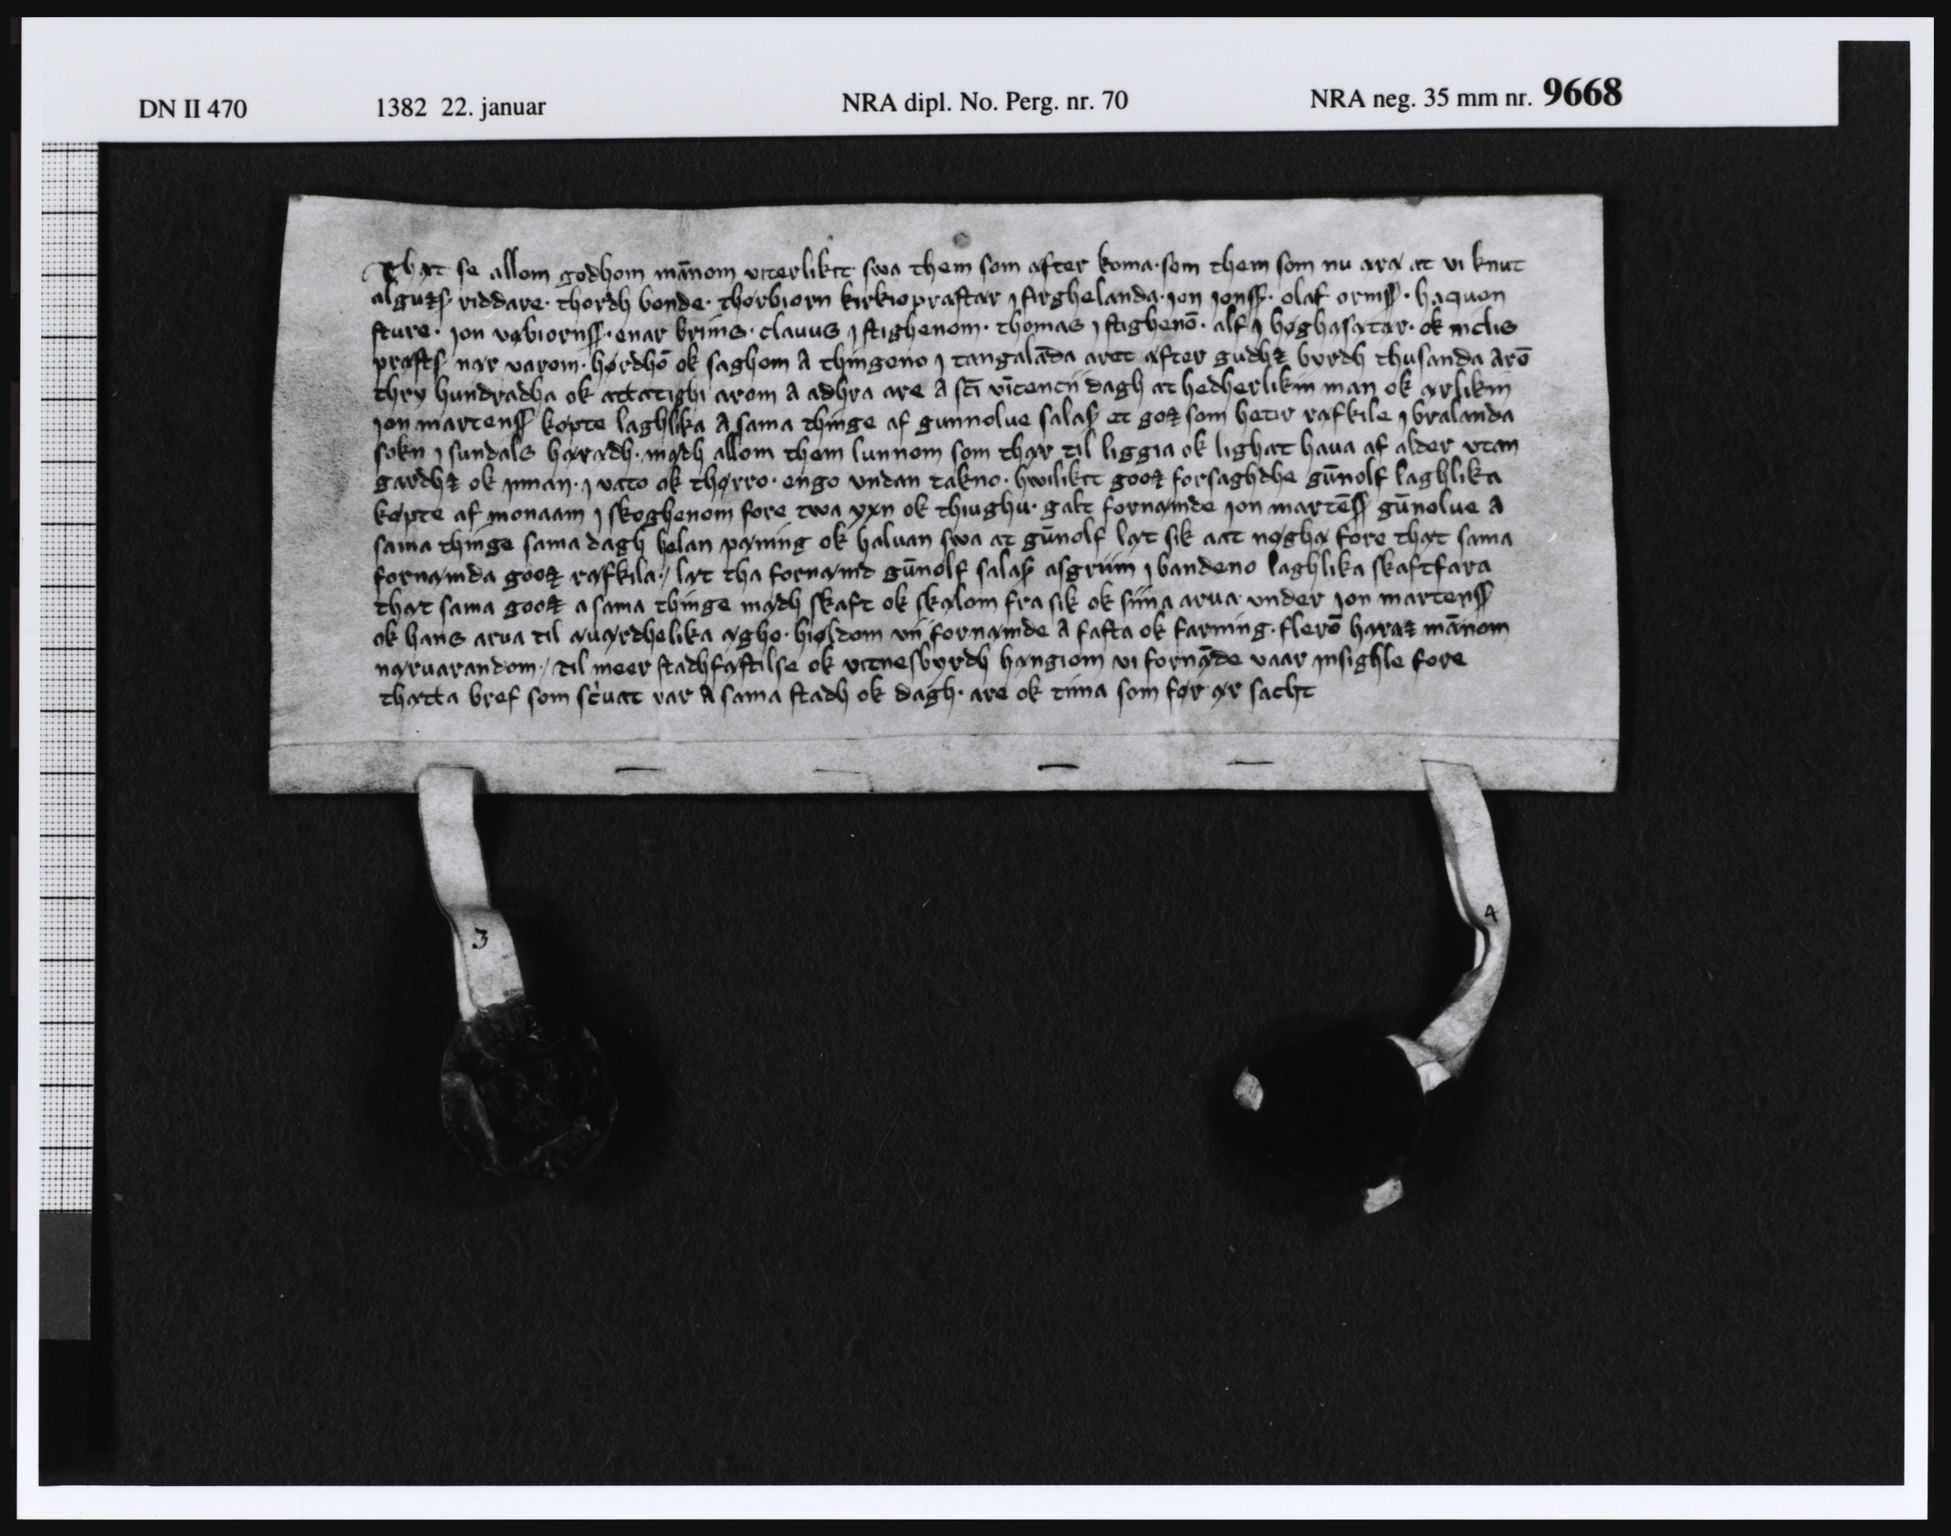 DN II 470 1382 22. januar NRA dipl. No. Perg. nr. 70 NRA neg. 35 mm nr. 9668
That se allom godhom mānom viterlikit swa them som æfter koma · som them som nu æra at vi knut
riddare · thordh bonde · thorbiorn kirkiopræstær j færghelanda · jon jonss · olaf ormss · haquon
sture · jon væbiornss · enar brims · clauus j stighenom · thomas j stighenō · alf j bøghasætær · ok niclis
nar varom · hørdhō ok saghom A thingeno j tangalāda aret æfter gudhꝫ byrdh thusanda Arō
thry hundradha ok attatighi arom A adhra are A sc̄i vīcencii dagh at hedherlikin man ok ærlikin
jon martenss køpte laghlika A sama thinge af gunnolue et goꝫ som hetir rafkile j bralanda
sokn j sundals hæradh · mædh allom them lunnom som thær til liggia ok lighat haua af alder vtan
gardhꝫ ok jnnan · j vato ok thørro · engo vndan takno · hwilikit gooꝫ forsaghdhe gūnolf laghlika
køpte af monaam j skoghenom fore twa yxn ok thiughu · galt fornæmde jon martēss gūnolue A
sama thinge sama dagh helan pæning ok haluan swa at gūnolf læt sik aat nøghæ fore thæt sama
fornæmda gooꝫ rafkila / læt tha fornæmt gūnolf asgrim j bandeno laghlika skaftfæra
thæt sama gooꝫ a sama thinge mædh skaft ok skælom fra sik ok siina arua vnder jon martenss
ok hans arua til æuærdhelika ægho · hioldom vii fornæmde A fasta ok færning · flerō hæraꝫ mānom
næruarandom / til meer stadhfæstilse ok vitnesbyrdh hængiom vi fornǣde vaar jnsighle fore
thætta bref som sc͛uat var A sama stadh ok dagh · are ok tima som før ær sacht
3
4